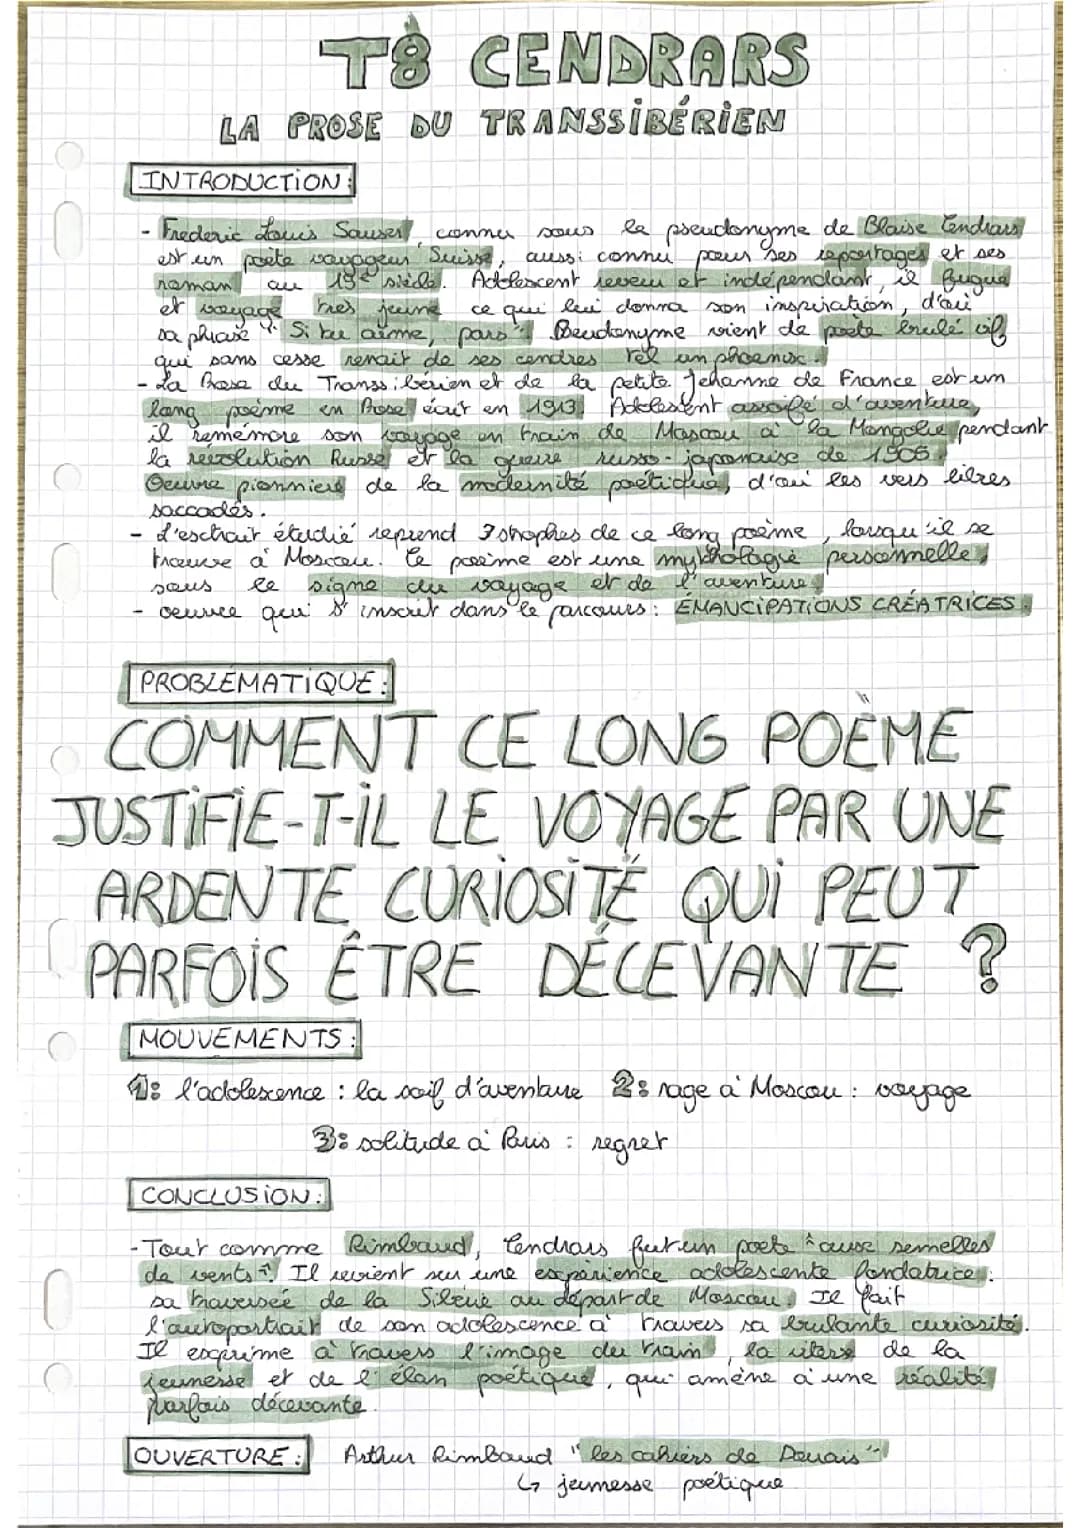 T8 CENDRARS
LA PROSE DU TRANSSIBÉRIEN
INTRODUCTION :
- Frederic Louis Sauser, connu sous le pseudonyme de Blaise Cendrars
est un poète voyageur Suisse, aussi connu pour ses reportages et ses
roman au 19e siècle. Adolescent reveur et indépendant, il fugua
et voyage très jeune ce qui lui donna son inspiration, d'où
sa phrase " Si tu aime, pars". Pseudonyme vient de poète brulé vif
qui sans cesse renait de ses cendres tel un phoenix.
- La Prose du Transsibérien et de la petite Jehanne de France est un
long poème en Prose écrit en 1913. Adolescent assoifé d'aventure,
il remémore son voyage en train de Moscou à la Mongolie pendant
la révolution Russe et la guerre russo-japonaise de 1905.
Oeuvre pionniere de la modernité poétique, d'où les vers libres
saccadés.
- L'extrait étudié reprend 3 strophes de ce long poème, lorsqu'il se
trouve à Moscou. Ce poème est une mythologie personnelle,
sous le signe du voyage et de l'aventure.
- oeuvre qui s'inscrit dans le parcours : ÉMANCIPATIONS CRÉATRICES.
PROBLÉMATIQUE :
COMMENT CE LONG POÈME
JUSTIFIE-T-IL LE VOYAGE PAR UNE
ARDENTE CURIOSITÉ QUI PEUT
PARFOIS ÊTRE DÉCEVANTE ?
MOUVEMENTS :
1: l'adolescence : la soif d'aventure 2: rage à Moscou : voyage
3: solitude à Paris : regret
CONCLUSION :
- Tout comme Rimbaud, Cendrars fut un poète "aux semelles
de vents". Il revient sur une expérience adolescente fondatrice :
sa traversée de la Siberie au départ de Moscou. Il fait
l'autoportrait de son adolescence à travers sa brulante curiosité.
Il exprime à travers l'image du train, la vitesse de la
jeunesse et de l'élan poétique, qui amène à une réalité
parfois décevante.
OUVERTURE : Arthur Rimbaud "les cahiers de Douais"
↳ jeunesse poétique